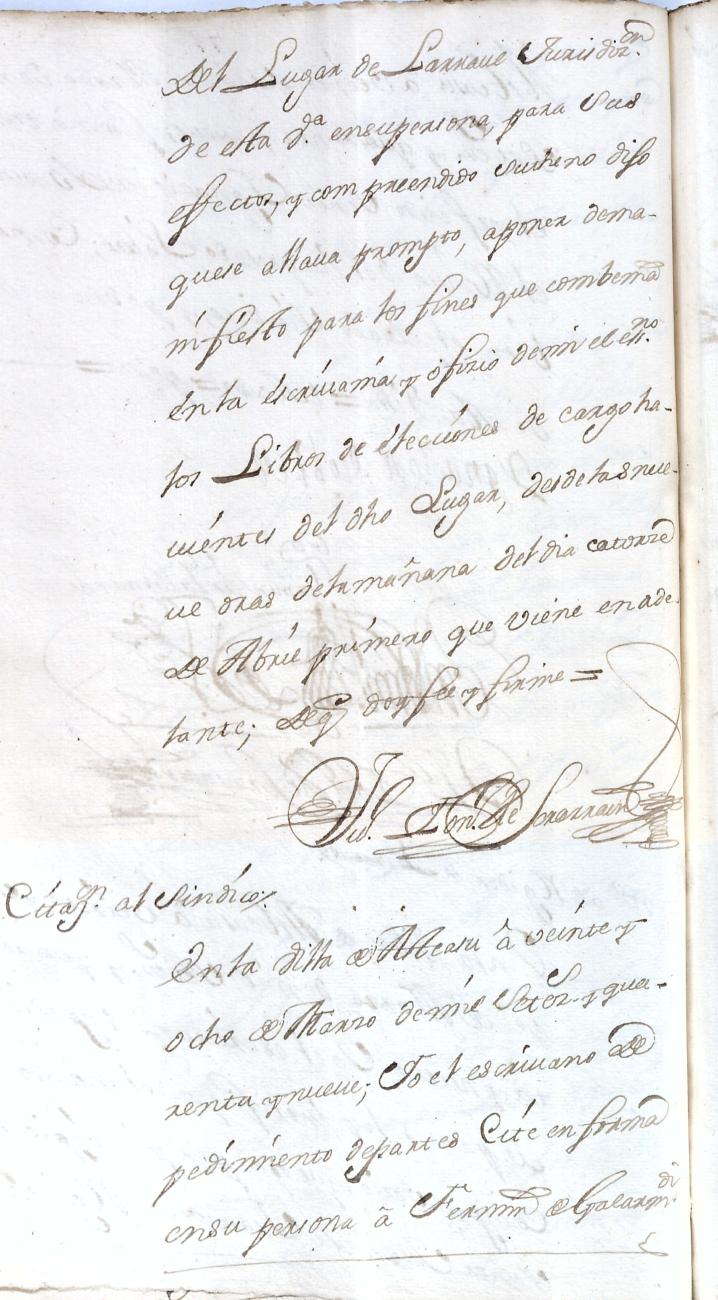 del Lugar de Larraue Jurisdiz.on
de esta d.ha en su persona, para sus
efectos, y compreendido su theno diso
que se allaua prompto, aponer dema-
nifiesto para los fines que combenia
en la escriuania y ofizio demi el es.no
los Libros de elecciónes de cargoha-
uientes del dho Lugar, desde las nue-
ue oras dela mañana del dia catorze
de Abril primero que viene en ade-
lante; de q doy fee y firme =
Ant.o de Sorarrain
Citaz.on al Sindico.
En la villa de Alcasu â veinte y
ocho de Marzo de mil Setez.s y qua-
renta y nueue; Yo el escriuano de
pedimiento de partes Cite en forma
en su persona â Fermin de Galardi